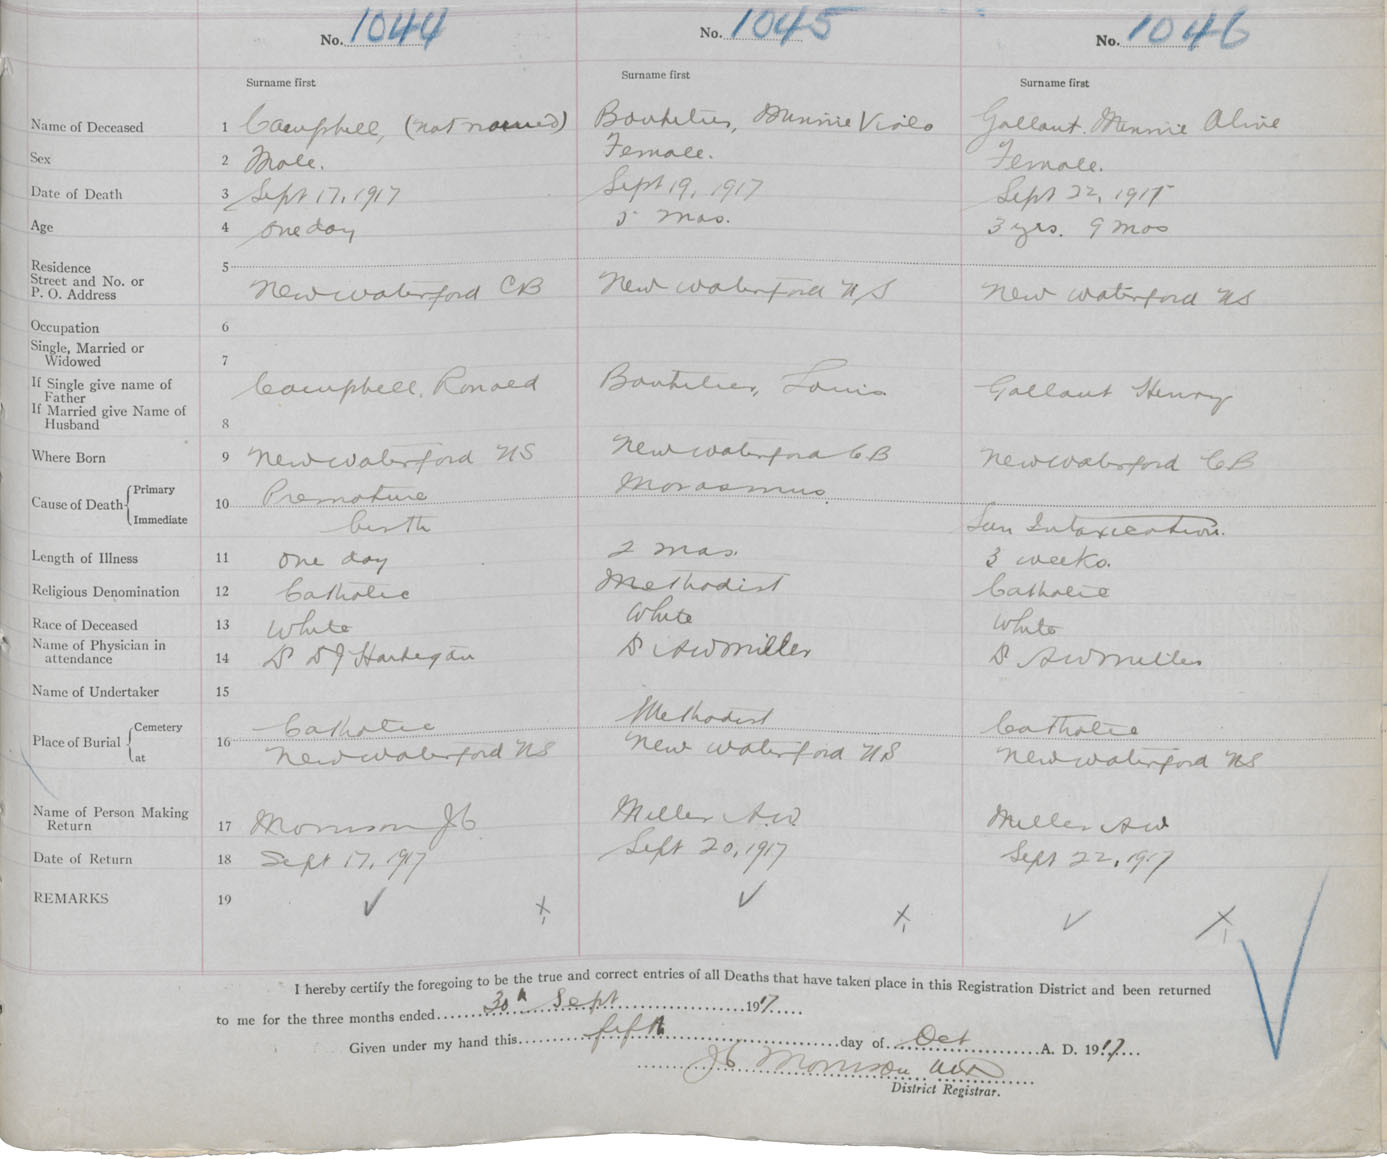 No. 1044 No. 1045 No. 1046
Surname first Surname first Surname first
Name of Deceased 1 Campbell, (not named) Boutilier, Minnie Viola Gallant. Minnie Alive
Sex 2 Male. Female. Female.
Date of Death 3 Sept 17, 1917 Sept 19, 1917 Sept 22, 1917
Age 4 one day 5 mos. 3 yrs. 9 mos
Residence 5
Street and No. or
P. O. Address New Waterford CB New Waterford NS New Waterford NS
Occupation 6
Single, Married or
Widowed 7
If Single give name of
Father Campbell, Ronald Boutilier, Louis Gallant Henry
If Married give Name of
Husband 8
Where Born 9 New Waterford NS New Waterford CB New Waterford CB
Cause of Death Primary 10 Premature Marasmus
Immediate birth Intoxication.
Length of Illness 11 one day 2 mos. 3 weeks.
Religious Denomination 12 Catholic Methodist Catholic
Race of Deceased 13 White White White
Name of Physician in
attendance 14 Dr DJ Hartegan Dr AW Miller Dr AW Miller
Name of Undertaker 15
Place of Burial Cemetery 16 Catholic Methodist Catholic
at New Waterford NS New Waterford NS New Waterford NS
Name of Person Making
Return 17 Morrison JC Miller A.W. Miller AW
Date of Return 18 Sept 17, 1917 Sept 20, 1917 Sept 22, 1917
REMARKS 19
I hereby certify the foregoing to be the true and correct entries of all Deaths that have taken place in this Registration District and been returned
to me for the three months ended 30th Sept 1917
Given under my hand this fifth day of Oct A. D. 1917
JC Morrison
District Registrar.